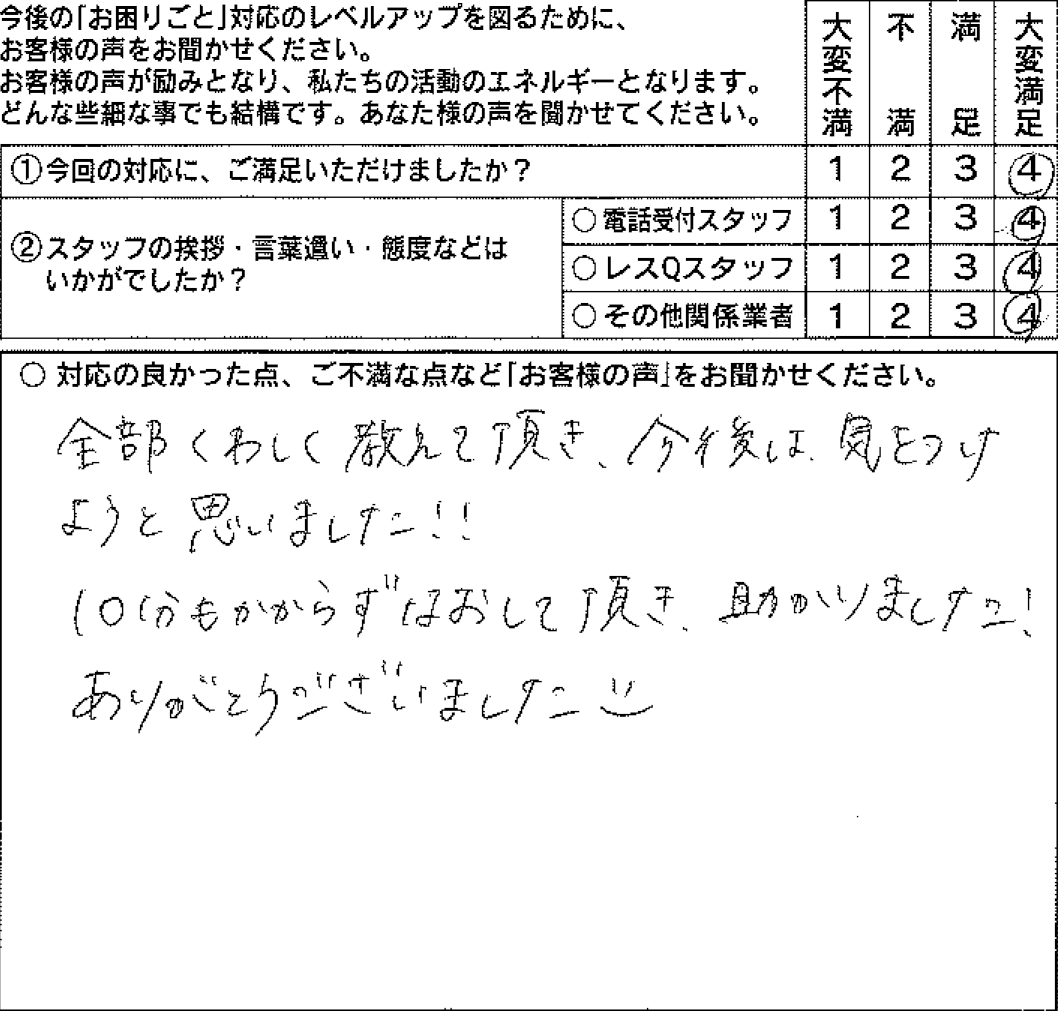 今後の「お困りごと」対応のレベルアップを図るために、
お客様の声をお聞かせください。
お客様の声が励みとなり、私たちの活動のエネルギーとなります。
どんな些細な事でも結構です。あなた様の声を聞かせてください。
大変不満 不満 満足 大変満足
①今回の対応に、ご満足いただけましたか？ 1 2 3 4
②スタッフの挨拶・言葉遣い・態度などは
いかがでしたか？
○電話受付スタッフ 1 2 3 4
○レスQスタッフ 1 2 3 4
○その他関係業者 1 2 3 4
○対応の良かった点、ご不満な点など「お客様の声」をお聞かせください。
全部くわしく教えて頂き、今後は気をつけ
ようと思いました!!
10分もかからずなおして頂き、助かりました!
ありがとうございました